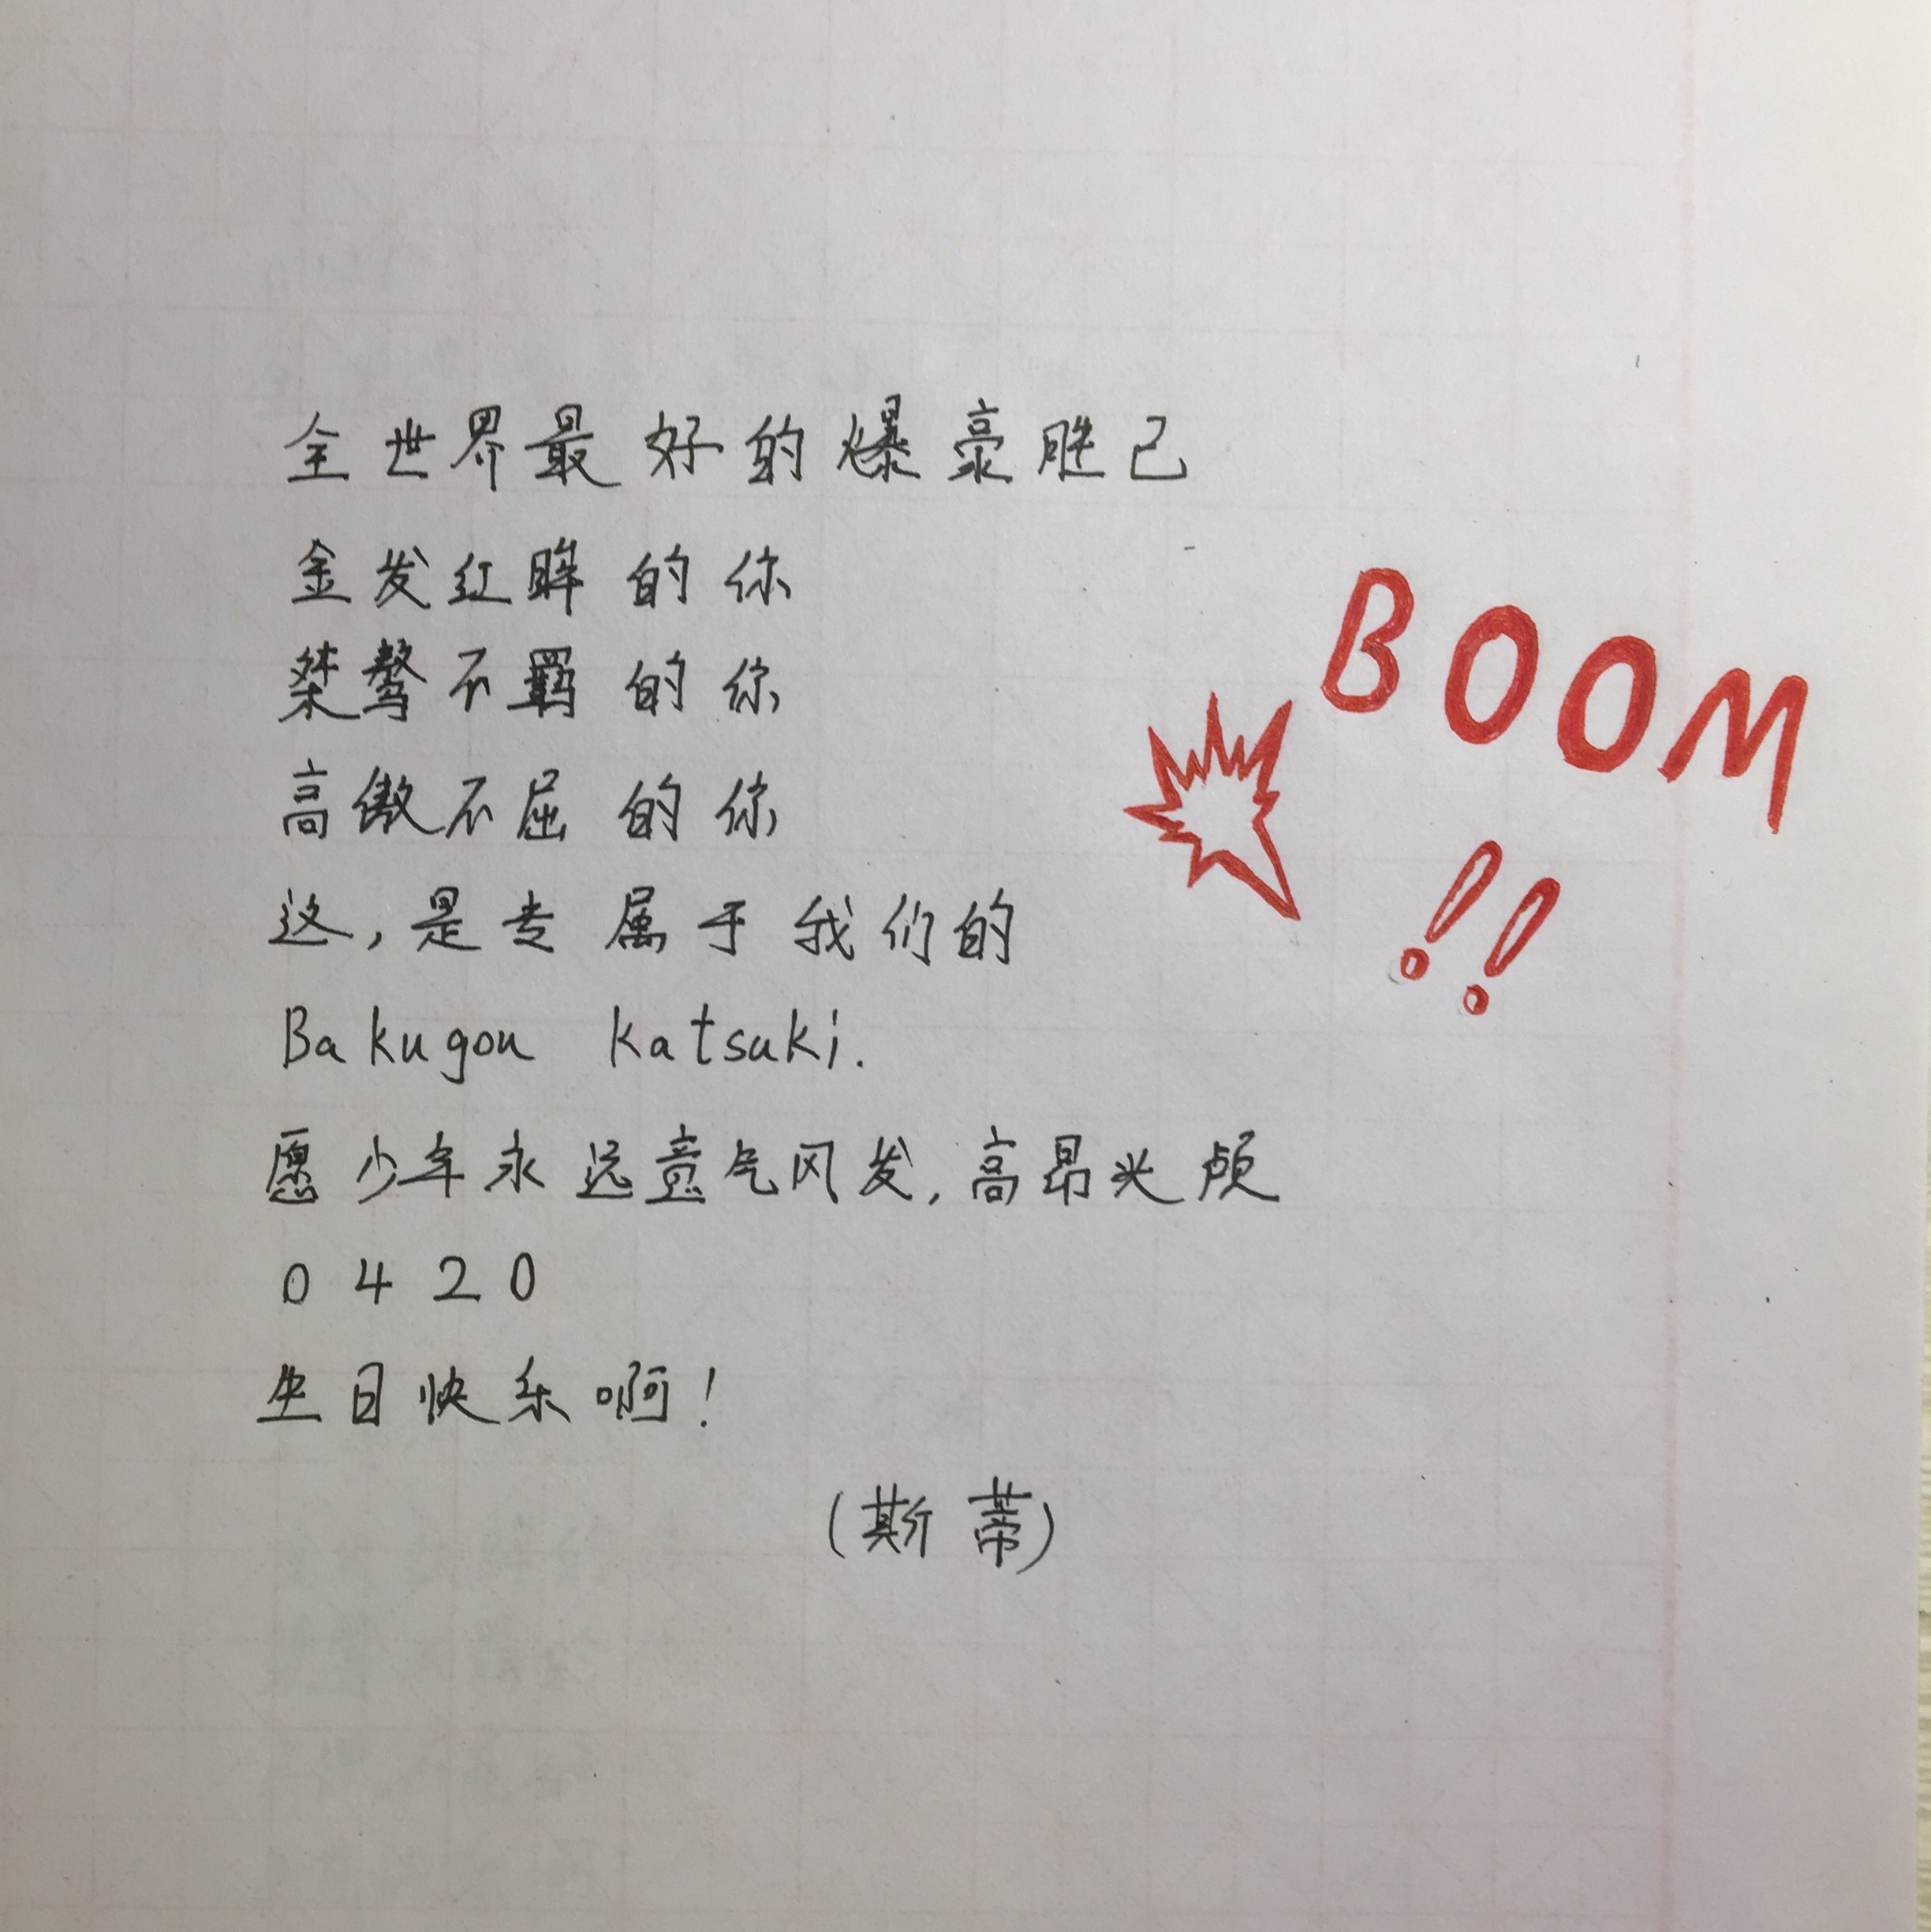 全世界最好的爆豪胜己
金发红眸的你
桀骜不羁的你
高傲不屈的你
这,是专属于我们的
Bakugou Katsuki.
愿少年永远意气风发,高昂头颅
0420
生日快乐啊!
(斯蒂)
BOOM
!!